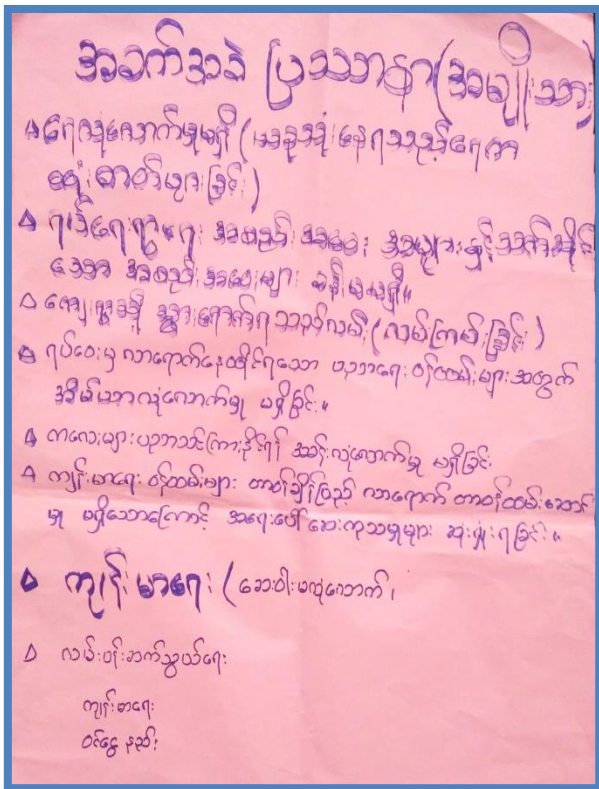 အခက်အခဲ ပြဿနာ(အမျိုးသား)
ရေလုံလောက်မှုမရှိ (ယခုသုံးနေရသည့်ရေက
ထုံးဓာတ်များခြင်း)
ရပ်ရေးရွာရေး အစည်းအဝေး အများနှင့်သက်ဆိုင်
သော အစည်းအဝေးများ ခန်းမမရှိ။
ကျေးရွာသို့ သွားရောက်ရသည့်လမ်း (လမ်းကြမ်းခြင်း)
ရပ်ဝေးမှ လာရောက်နေထိုင်ရသော ပညာရေး ဝန်ထမ်းများအတွက်
အိမ်ယာလုံလောက်မှု မရှိခြင်း။
ကလေးများပညာသင်ကြားနိုင်ရန် အခန်းလုံလောက်မှု မရှိခြင်း
ကျန်းမာရေး ဝန်ထမ်းများ တာဝန်ချိန်ပြည့် လာရောက် တာဝန်ထမ်းဆောင်
မှု မရှိသောကြောင့် အရေးပေါ် ဆေးကုသမှုများ ဆုံးရှုံးရခြင်း။
ကျန်းမာရေး (ဆေးဝါးမလုံလောက်၊
လမ်းပန်းဆက်သွယ်ရေး
ကျန်းမာရေး
ဝင်ငွေနည်း